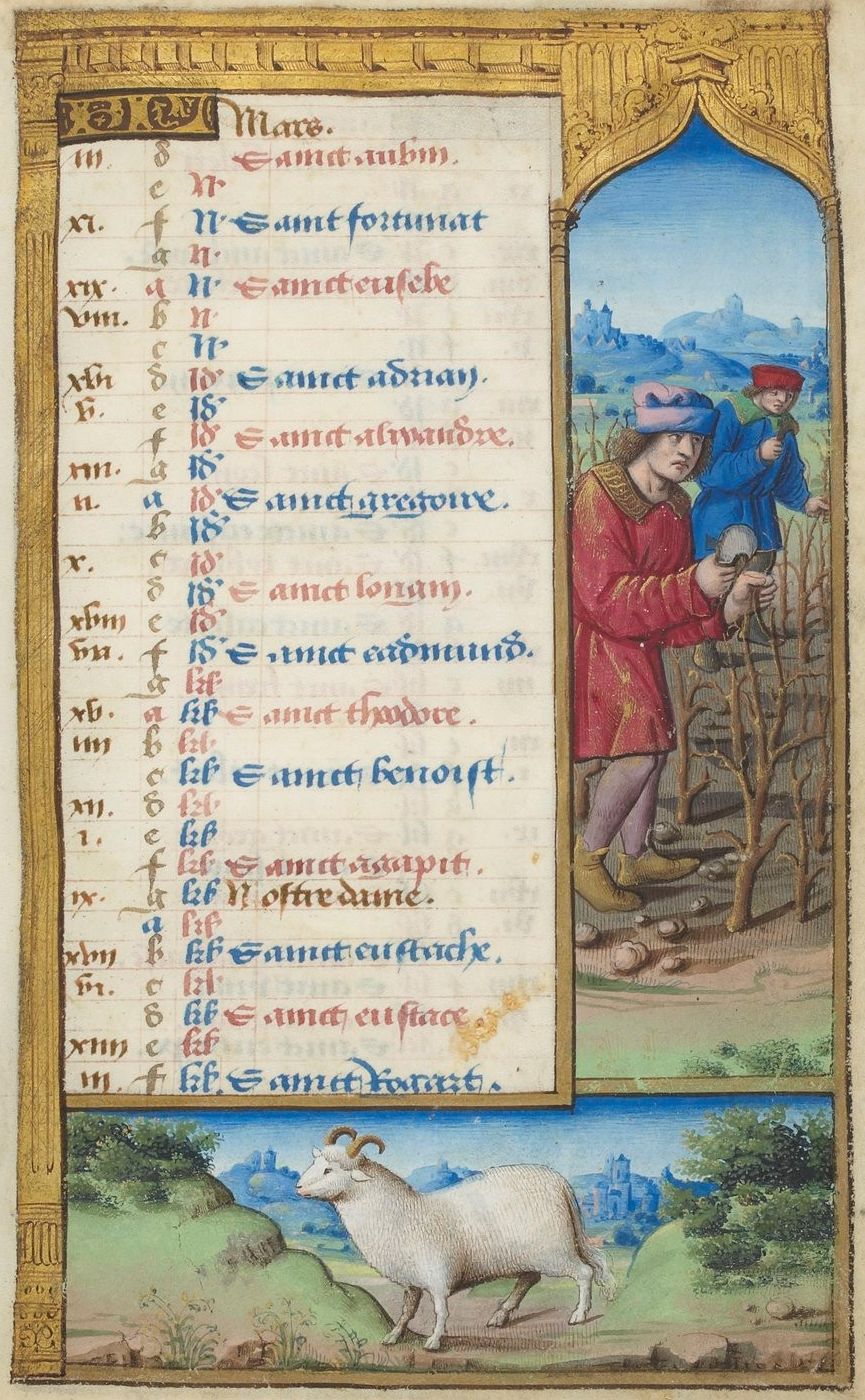 Mars.
iii d Sainct aubin.
e N
xi. f N Sainct fortunat
g N
xix. a N Sainct eusebe
viii. b N
c N
xvi d Id Sainct adrian.
v. e Id
f Id Sainct alixandre.
xiii. g Id
ii. a Id Sainct gregoire.
b Id
x. c Id
d Id Sainct longin.
xviii e Id
vii. f Id Sainct eadmund.
g kl
xv. a kl Sainct theodore.
iiii b kl
c kl Sainct benoist.
xii. d kl
i. e kl
f kl Sainct agapit.
ix. g kl Nostre dame.
a kl
xvii b kl Sainct eustache.
vi. c kl
d kl Sainct eustace
xiiii e kl
iii. f kl Sainct